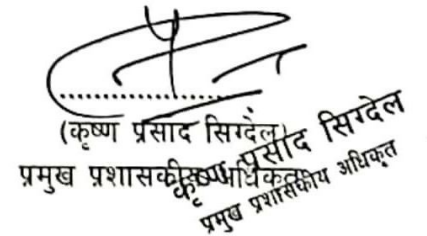 (कृष्ण प्रसाद सिग्देल)
प्रमुख प्रशासकीय अधिकृत
कृष्ण प्रसाद सिग्देल
प्रमुख प्रशासकीय अधिकृत